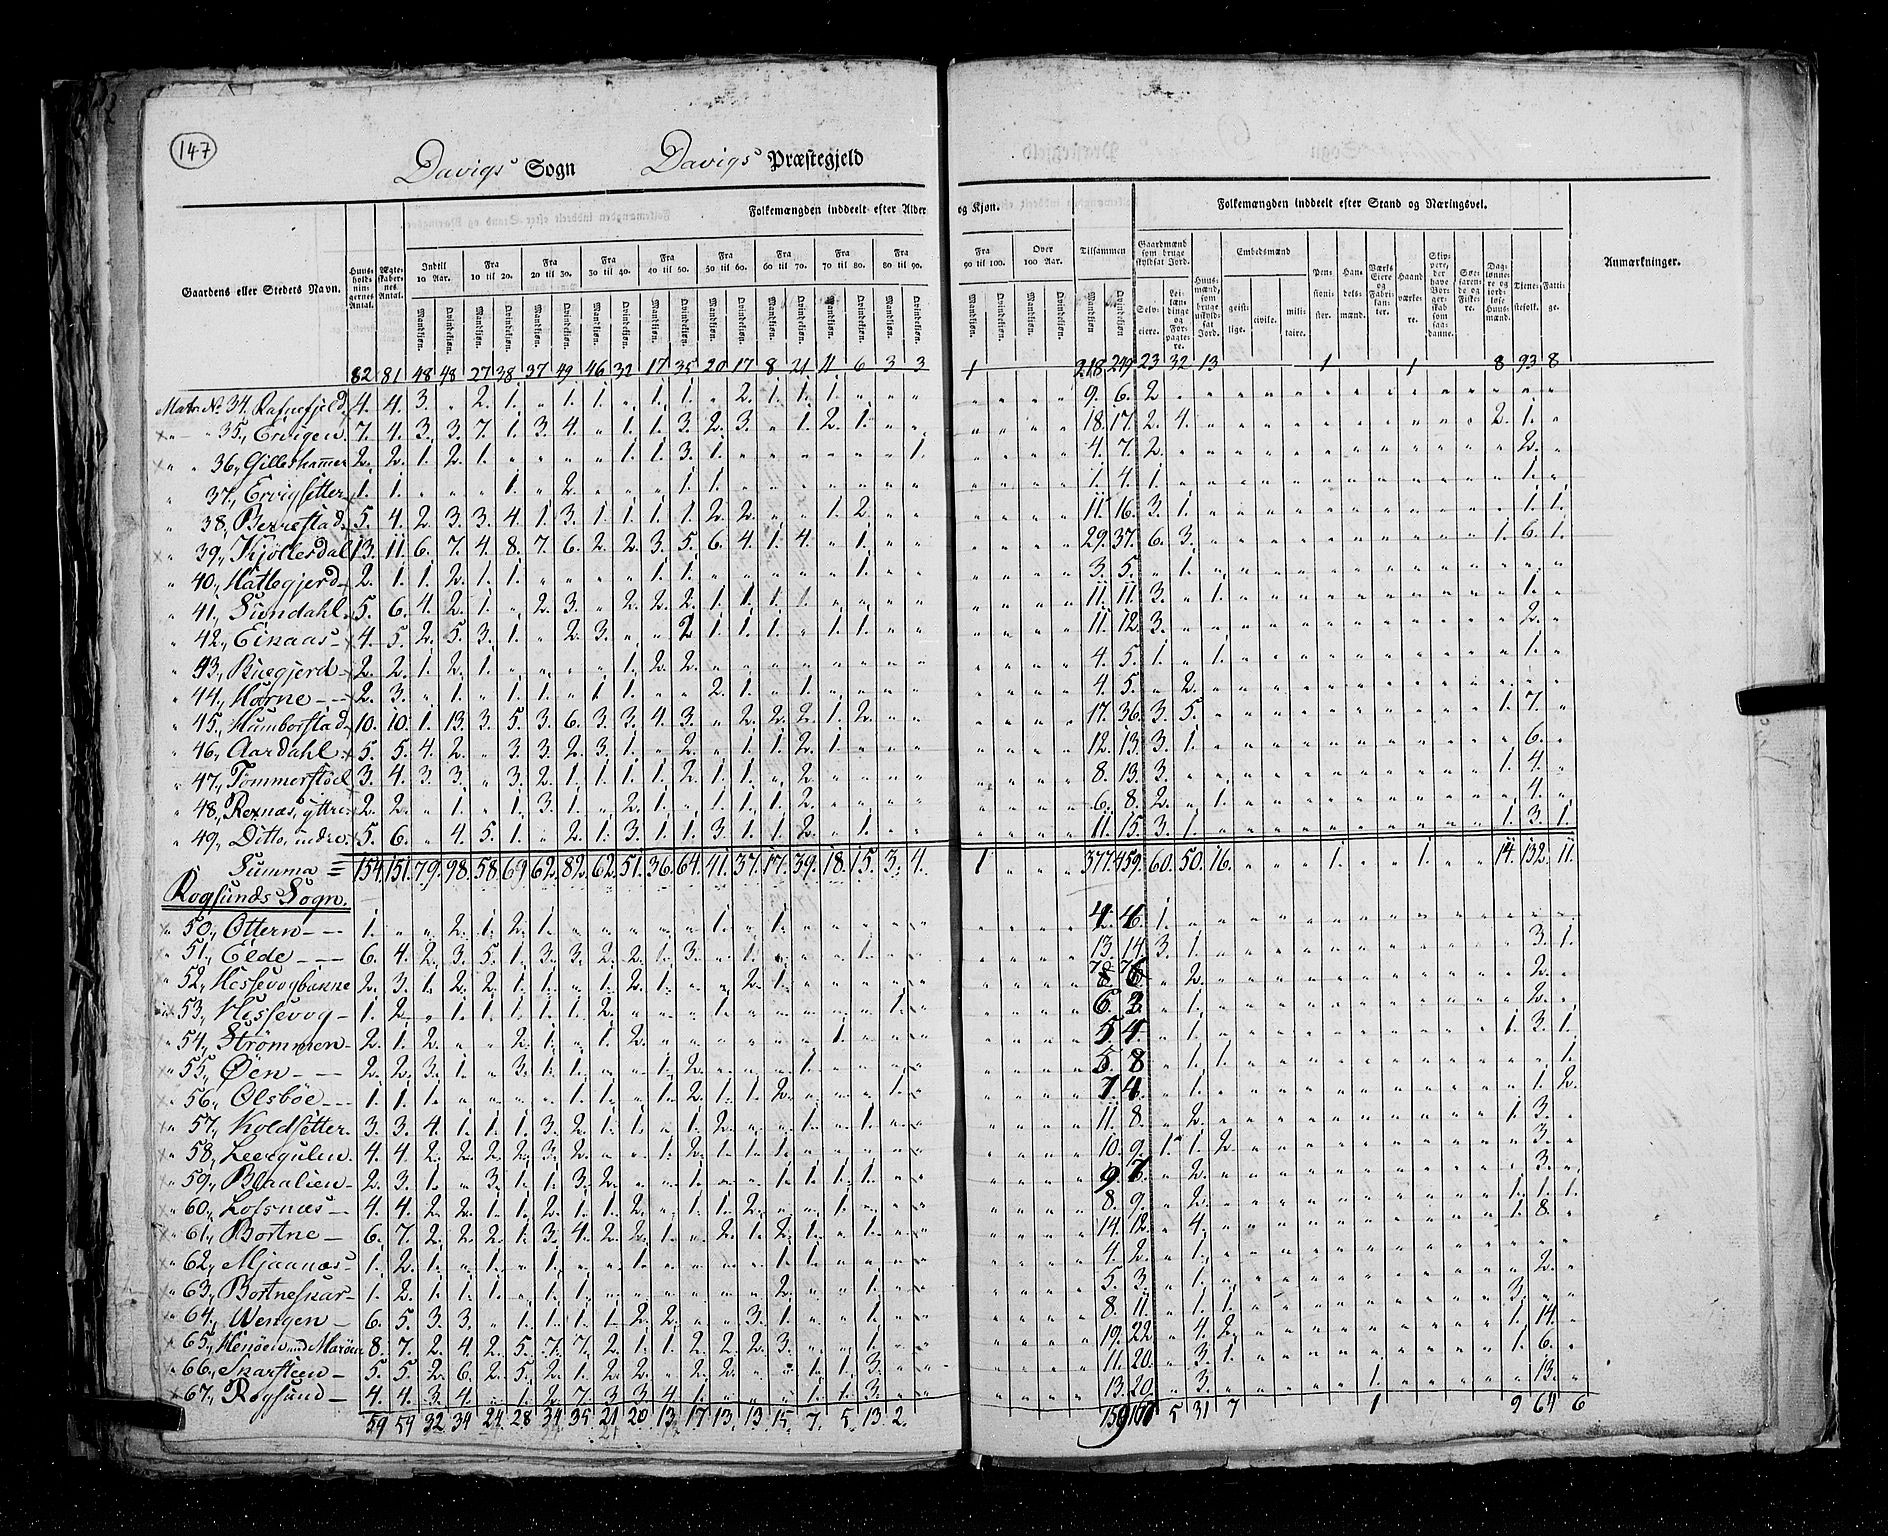 147
Davigs Sogn Davigs Præstegjeld
Folkemængden inddeelt efter Alder og Kjøn.
Folkemængden inddeelt efter Stand og Næringsvei.
Gaardens eller Stedets Navn.
Huusholdningernes Antal.
Ægteskabernes Antal.
Indtil 10 Aar.
Fra 10 til 20.
Fra 20 til 30.
Fra 30 til 40.
Fra 40 til 50.
Fra 50 til 60.
Fra 60 til 70.
Fra 70 til 80.
Fra 80 til 90.
Fra 90 til 100.
Over 100 Aar.
Tilsammen
Mandkiøn. Qvindekiøn.
Gaardmænd som bruge skyldsat Jord.
Selveiere. Leilændinge og Forpagtere.
Huusmænd, som bruge uskyldsat Jord.
Embedsmænd
geistlige. civile. militaire.
Pensionister.
Handelsmænd.
Værks Eiere og Fabrikanter.
Haandværkere.
Skippere, der have Borgerskab som saadanne.
Søefarende og Fiskere.
Daglønnere og jordløse Huusmænd.
Tjenestefolk.
Fattige.
Anmærkninger.
82 81 48 48 27 38 37 49 46 32 17 35 20 17 8 21 11 6 3 3 1 218 249 23 32 13 1 1 8 93 8
Matr. No 34, Rafnefjeld 4. 4. 3. „ 2. 1. „ 1. 1. „ 1. 1. „ 2. 1. 1. 1. „ „ „ 9. 6. 2
35, Ervigen 7. 4. 3. 3. 7. 1. 3. 4. „ 1. 1. 3. 2. 3. „ 1. 2. 1. „ „ 18. 17. 2. 4. 2. 1.
36, Gilleshammer 2. 2. 1. 2. 1. „ „ „ „ 1. 1. 3. 1. „ „ „ „ „ „ 1. 4. 7. 2. 2.
37, Ervigsetter 1. 1. „ „ „ 1. „ 2. „ „ „ 1. 1. „ „ „ „ „ „ „ 1. 4. 1. 1.
38, Berrestad 5. 4. 2. 3. 3. 4. 1. 3. 1. 1. 1. 1. 2. 2. „ „ 1. 2. „ „ 11. 16. 3. 1. 1. 1.
39, Kjöllesdal 13. 11. 6. 7. 4. 8. 7. 6. 2. 2. 3. 5. 6. 4. 1. 4. „ 1. „ „ 29. 37. 6. 3. 1. 6. 1.
40, Hattlegjerd 2. 1. 1. 2. 1. 1. „ „ „ „ 1. 1. „ „ „ „ „ 1. „ „ 3. 5. „ 1.
41, Sundahl 5. 6. 4. 2. 1. „ 2. 3. „ 2. 2. 2. 1. 1. 1. 1. „ „ „ „ 11. 11. 3. „ 1. 1.
42, Eikaas 4. 5. 2. 5. 3. 1. „ 2. 3. „ „ 2 1. 1. 1. „ 1. 1. „ „ 11. 12. 3. 2.
43, Buegjerd 2. 2. 1. 2. 1. „ „ „ „ 1. 2. 2. „ „ „ „ „ „ „ „ 4. 5. 1. „ 1. 1.
44, Horne 2. 3. „ 1. „ 1. 1. „ 1. 1. „ „ 2. 1. „ 1. „ „ „ „ 4. 5. „ 2.
45, Humborstad 10. 10. 1. 13. 3. 5. 3. 6. 3. 3. 4. 3. „ 2. 2. 2. 1. 2. „ „ 17. 36. 3. 5. 1. 7.
46, Aardahl 5. 5. 4. 2. „ 3. 3. 2. 3. 1. „ 2. „ 1. 1. 2. 1. „ „ „ 12. 13. 3. 1. 6.
47, Tommerstöel 3. 4. 3. 3. „ 3. 2. 1. 1. 1. 1. 2. 1. 1. „ 2. „ „ „ „ 8. 13. 3. 1. 4.
48, Rexnæs, yttre 2. 2. „ 1. „ 1. 3. 1. „ 2. 1. „ 1. 1. 1. 2. „ „ „ „ 6. 8. 2. „ 1. 4.
49, Ditto, indre 5. 6. „ 4. 5. 1. „ 2. 1. 3. 1. 1. 3. 1. 1. 2. „ 1. „ „ 11. 15. 3. 1. 1. 3. 1.
Summa = 154. 151. 79. 98. 58. 69 62. 82. 62. 51. 36. 64. 41. 37. 17. 39. 18. 15. 3. 4. 1 377. 459. 60. 50. 16. 1. 1. 14. 132. 11.
Rogsunds Sogn.
50, Ottern 1. „ „ 2. 1. 2. 1. „ „ „ „ „ 1. „ 1. „ „ „ „ „ 4. 1.
51, Elde 6. 4. 2. 3. 5. 1. 3. 3. 2. 2. 1. 3. „ 1. „ „ „ 1. „ „ 13. 14. 3. 1. 3. 1.
52, Hessevogbakne 2. 3. 1. 2. 2. 1. 1. „ 1. 2. 1. „ „ 2. 1. „ „ „ „ „ „ 2. 2.
53, Hessevog 1. 2. „ 1. 1. 1. 1. 1. 2. „ „ „ 1. „ „ „ „ „ 1. „ 6. „ 1. 2.
54, Strömmen 2. 1. 2. „ „ 2. 1. „ 1. 2. „ „ „ „ „ „ 1. „ „ „ 5. 4. „ 1. 1. 3. 1.
55, Öen 2. 2. 3. 1. „ 3. 1. 1. „ „ 1. 2. „ „ „ 1. „ „ „ „ 5. 8 „ 1. 1. 1.
56, Olsböe 1. 1. 1. „ „ „ „ 1. 1. 1. 1. 2. 1. 1. 2. „ „ „ 1. „ „ 1. 1. 2.
57, Koldsetter 3. 3. 4. 1. 1. 1. 3. 2. 1. 1. „ 1. 2. „ „ 1. „ 1. „ „ 11. 8. „ 2. 1. 3.
58, Leergulen 4. 4. 2. 2. 2. 2. 3. 2. „ „ 1. 2. 1. 1. 1. 1. „ „ „ „ 10. 9. 1. 1. 2. 3.
59, Blaalien 2. 3. 1. „ 3. 1. 1. 3. 2. „ „ 1. „ „ 1. 1. 1. 1. „ „ 9. 7. „ 2. 3.
60, Lofsnæs 4. 4. 2. 2. 1. 1. 2. 1. 1. 2. „ 1. 1. 2. „ „ 1. „ „ „ 8. 9. „ 2. 1. 1. 1.
61, Bortne 6. 7. 2. 2. 2. 1. 3. 4. 2. 2. 1. „ 2. 1. 2. 1. „ 1. „ „ 14. 12. „ 4. 1. 8.
62, Mjaanæs 1. 2. 1. „ 1. „ 1. „ „ 1. „ „ „ „ 1. 1. „ „ „ „ 4. 2. „ 1.
63, Bortneskar 1. 2. 1. 1. 1. „ 1. 1. „ „ „ „ „ „ 2. „ „ 1. „ „ 5. 3. „ 1. 2.
64, Wengen 6. 5. 3. 3. „ 1. 1. 1. 1. 2. 2. „ „ 3. 1. „ „ 1. „ „ 8. 11. „ 1. 1. 3.
65, Henöen med Maröen 8. 7. 2. 4. 2. 5. 7. 7. 2. 1. 1. 2. 2. 2. 3. „ „ 1. „ „ 19. 22 „ 4. 2. 1. 14.
66, Skarsteen 5. 5. 2. 6. 2. 5. 2. 1. 2. 2. „ 2. 2. „ „ „ 1. 1. 3. „ 11. 20. „ 3. 1. 1. 6.
67, Rogsund 4. 4. 3. 4. „ 1. 2. 7. 3. 3. 4. 1. „ „ „ 1. 1. 3. „ „ 13. 20. „ 3. 1. 13.
59 59 32. 34 24. 28 34. 35 21 20 13. 17 13. 13. 15. 7. 5. 13. 2. 159 5 31 7 1 9 64 6